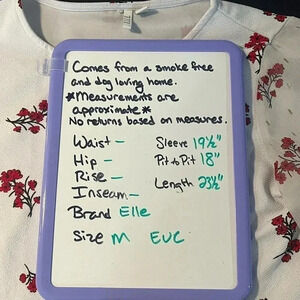 Comes from a smoke free
and dog loving home.
*Measurements are
approximate*
No returns based on measures.
Waist - Sleeve 19½"
Hip - Pit to Pit 18"
Rise - Length 23½"
Inseam -
Brand Elle
Size M EUC